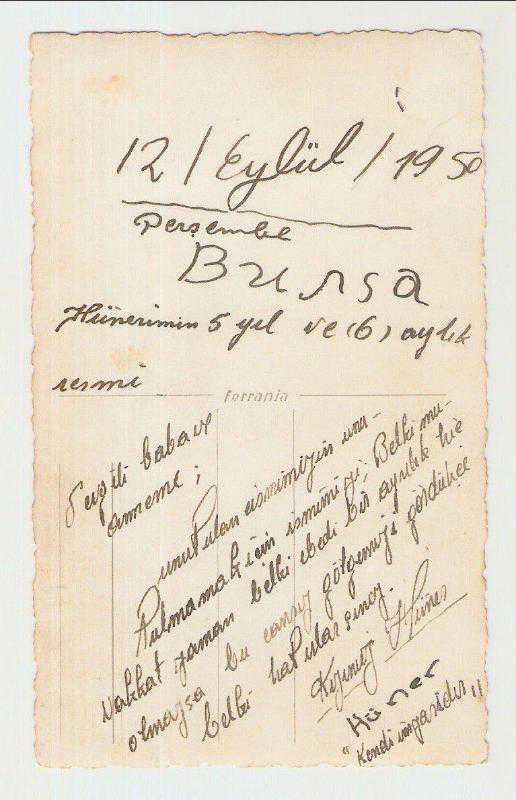 12 / Eylül / 1950
Perşembe
Bursa
Hünerimin 5 yıl ve (6) aylık
resmi
ferrania
Sevgili baba ve
anneme;
Unutulan ismimizin unu-
tulmamak için ismimizi; Belki mu-
vakkat zaman belki ebedi bir ayrılık hiç
olmazsa bu cansız gölgemizi gördükçe
belki hatırlarsınız.
Kızınız Hüner
Hüner
"Kendi imzasıdır"